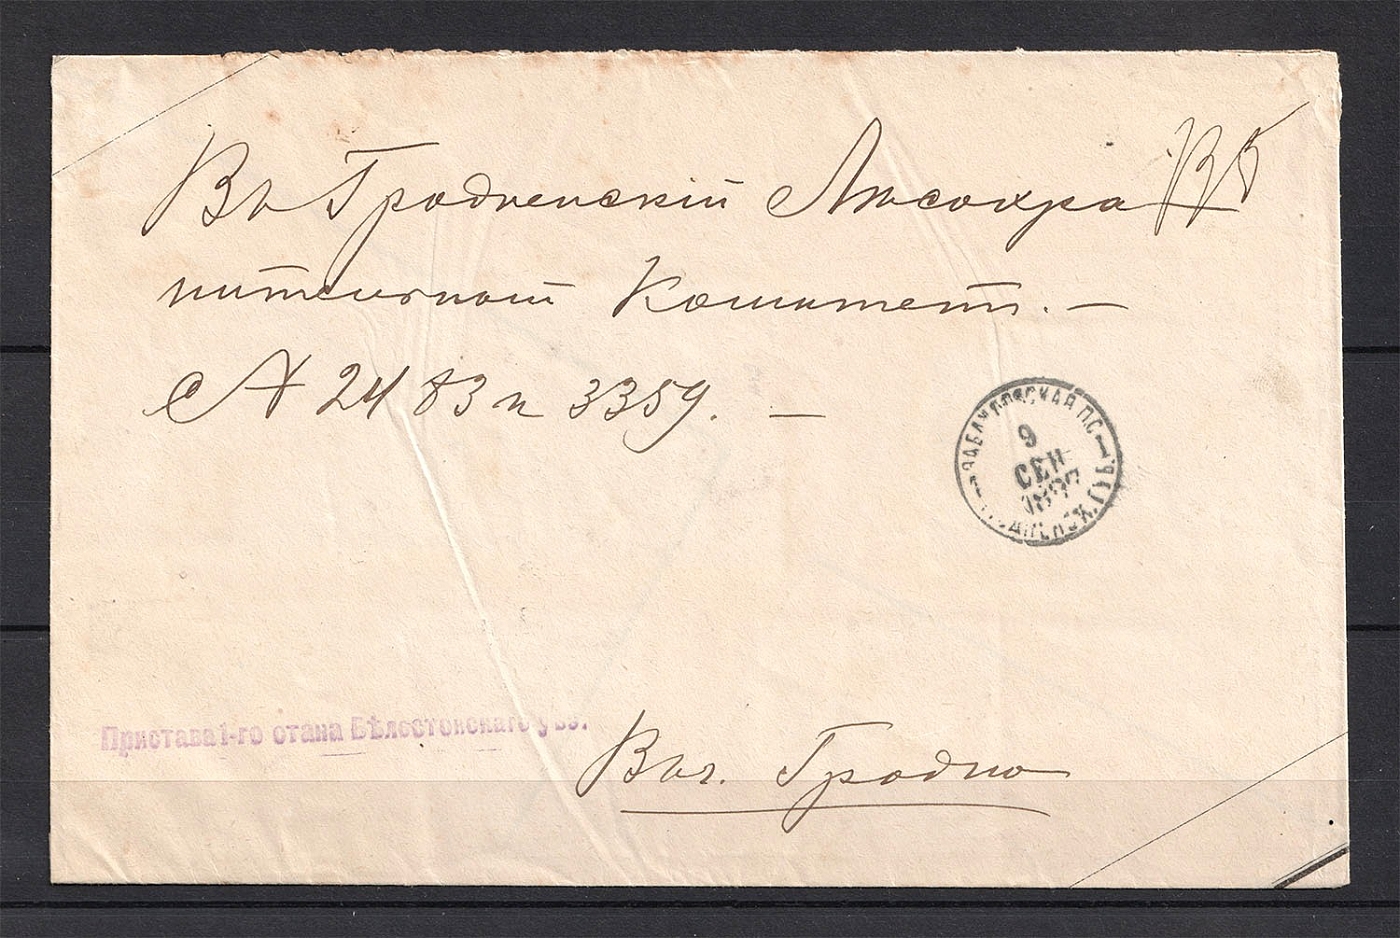 Въ Гродненскій Лѣсохра
нительный Комитетъ. —
№ 2483 и 3359. —
ЗАБЛУДОВСКАЯ П.О.
9
СЕН
1897
ГРОДНЕНСК.
Пристава 1-го стана Бѣлостокскаго уѣз.
Въ г. Гродно